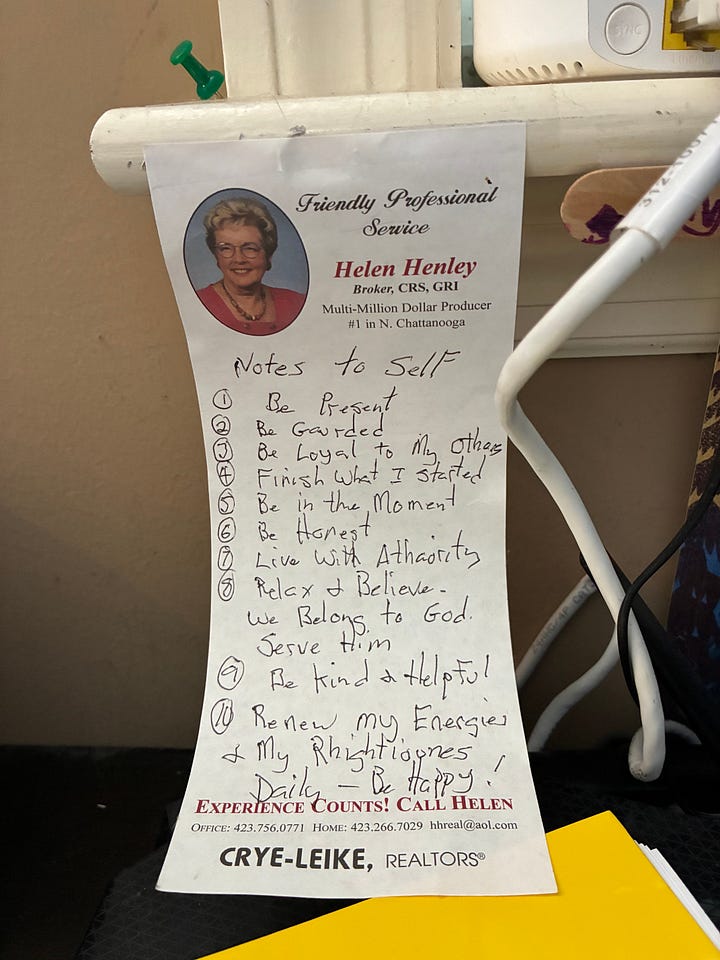 SYNC
Friendly Professional
Service
Helen Henley
Broker, CRS, GRI
Multi-Million Dollar Producer
#1 in N. Chattanooga
Notes to Self
1 Be Present
2 Be Gaurded
3 Be Loyal to My Others
4 Finish What I started
5 Be in the Moment
6 Be Honest
7 Live With Athaority
8 Relax & Believe.
We Belong to God.
Serve Him
9 Be Kind & Helpful
10 Renew my Energies
& My Rhightiounes
Daily — Be Happy!
EXPERIENCE COUNTS! CALL HELEN
OFFICE: 423.756.0771 HOME: 423.266.7029 hhreal@aol.com
CRYE-LEIKE, REALTORS®